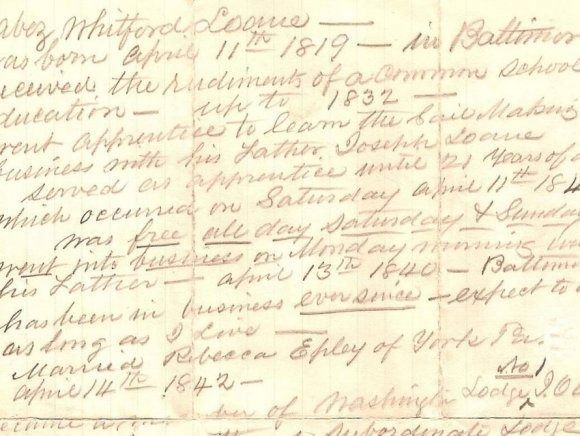 abez Whitford Loane —
was born April 11th 1819 — in Baltimor
eceived the rudiments of a common school
ducation — up to 1832 —
went apprentice to learn the Sail Making
business with his Father Joseph Loane
served as apprentice until 21 Years of a
which occurred on Saturday April 11th 184
was free all day Saturday & Sunday
went into business on Monday morning
his Father — April 13th 1840 — Baltimo
has been in business ever since — expect to
as long as I Live —
Married Rebecca Epley of York Pa.
April 14th 1842 —
No 1
ber of Washingt Lodge I. O.
Subordinate Lodge